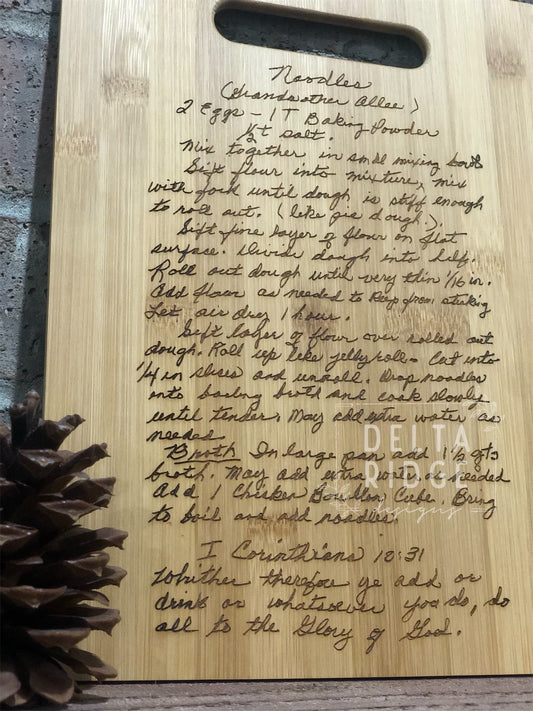 Noodles
(Grandmother Allee)
2 Eggs - 1 T Baking Powder
½ t salt.
Mix together in small mixing bowl
Sift flour into mixture, mix
with fork until dough is stiff enough
to roll out. (like pie dough.)
Sift fine layer of flour on flat
surface. Divide dough into half.
Roll out dough until very thin 1/16 in.
Add flour as needed to keep from sticking
Let air dry 1 hour.
Sift layer of flour over rolled out
dough. Roll up like jelly roll - Cut into
1/4 in slices and unroll. Drop noodles
into boiling broth and cook slowly
until tender. May add extra water as
needed
Broth In large pan add 1½ qts
broth. May add extra water as needed
Add 1 Chicken Bouillon Cube. Bring
to boil and add noodles.
I Corinthians 10:31
Whither therefore ye add or
drink or whatsoever you do, do
all to the Glory of God.
DELTA
RIDGE
designs